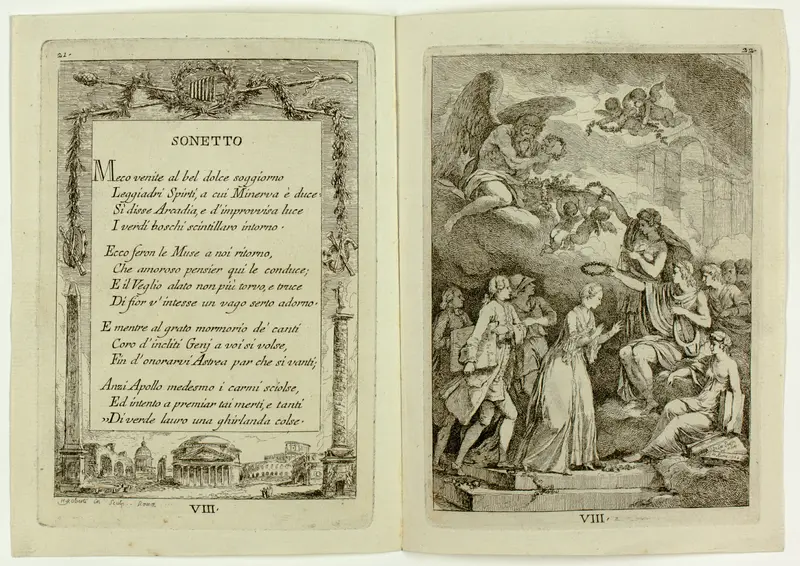 21.
SONETTO
Meco venite al bel dolce soggiorno
Leggiadri Spirti, a cui Minerva è duce:
Si disse Arcadia, e d'improvvisa luce
I verdi boschi scintillaro intorno.
Ecco feron le Muse a noi ritorno,
Che amoroso pensier qui le conduce;
E il Veglio alato non più torvo, e truce
Di fior v'intesse un vago serto adorno.
E mentre al grato mormorio de' canti
Coro d'incliti Genj a voi si volse,
Fin d'onorarvi Astrea par che si vanti;
Anzi Apollo medesmo i carmi sciolse,
Ed intento a premiar tai merti, e tanti
»Di verde lauro una ghirlanda colse.
VIII.
22.
VIII.